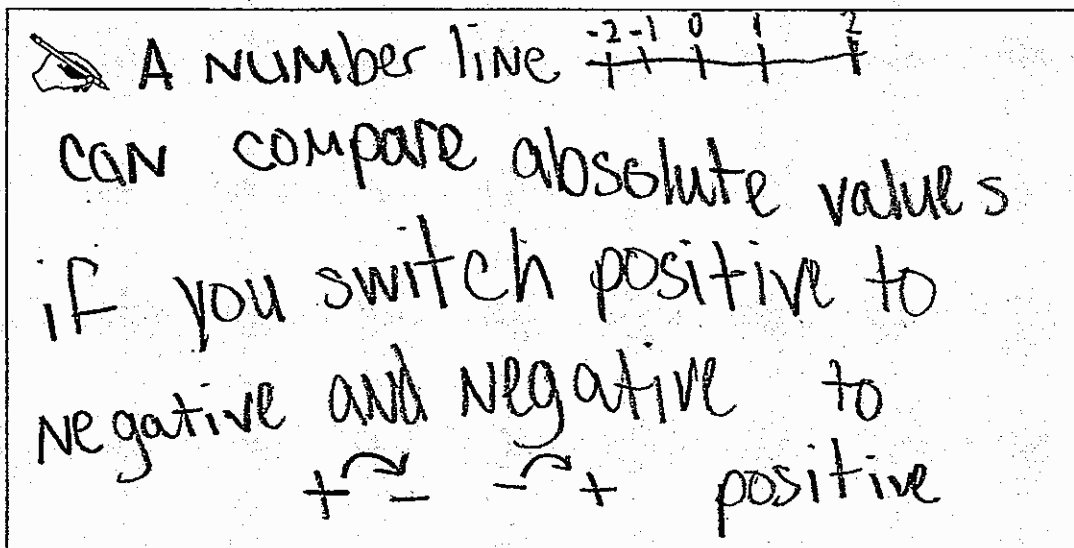 -2 -1 0 1 2
A number line
can compare absolute values
if you switch positive to
negative and negative to
positive
+ - - +